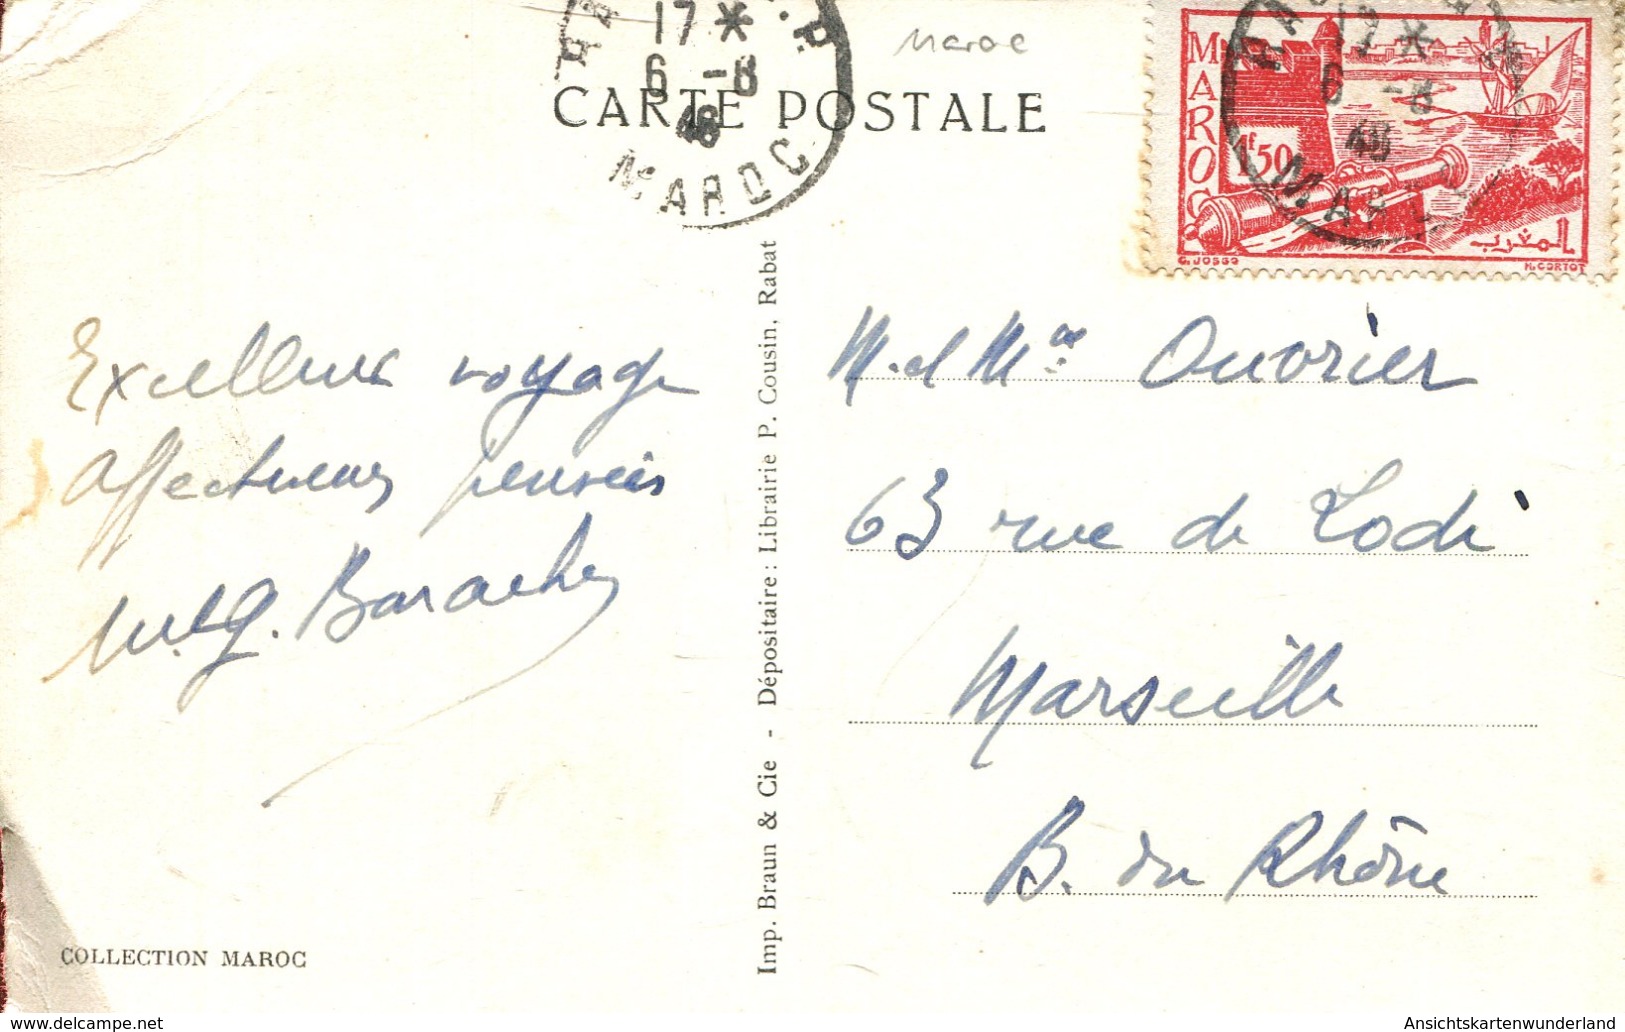 17 *
6 -8
46
MAROC
Maroc
CARTE POSTALE
MAROC
1f50
المغرب
G. JOSSO
H. CORTOT
17 *
6 -8
46
Excellent voyage
affectueuses pensées
Imp. Braun & Cie - Dépositaire: Librairie P. Cousin, Rabat
M. et Mme Ouvrier
63 rue de Lodi
Marseille
B. du Rhône
COLLECTION MAROC
AnsichtskartenWunderland